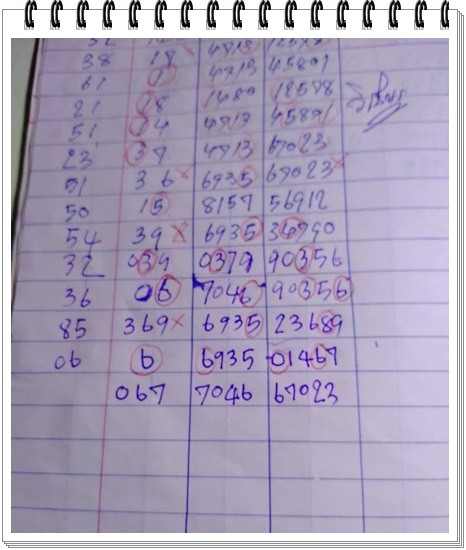 38 18
61 1 4713 45891
21 18 1689 18578
51 14 4713 45891
23 37 4713 67023
51 36x 6935 67023x
50 15 8157 56912
54 39x 6935 34990
32 039 0379 90356
36 06 7046 90356
85 369x 6935 23689
06 6 6935 01467
067 7046 67023